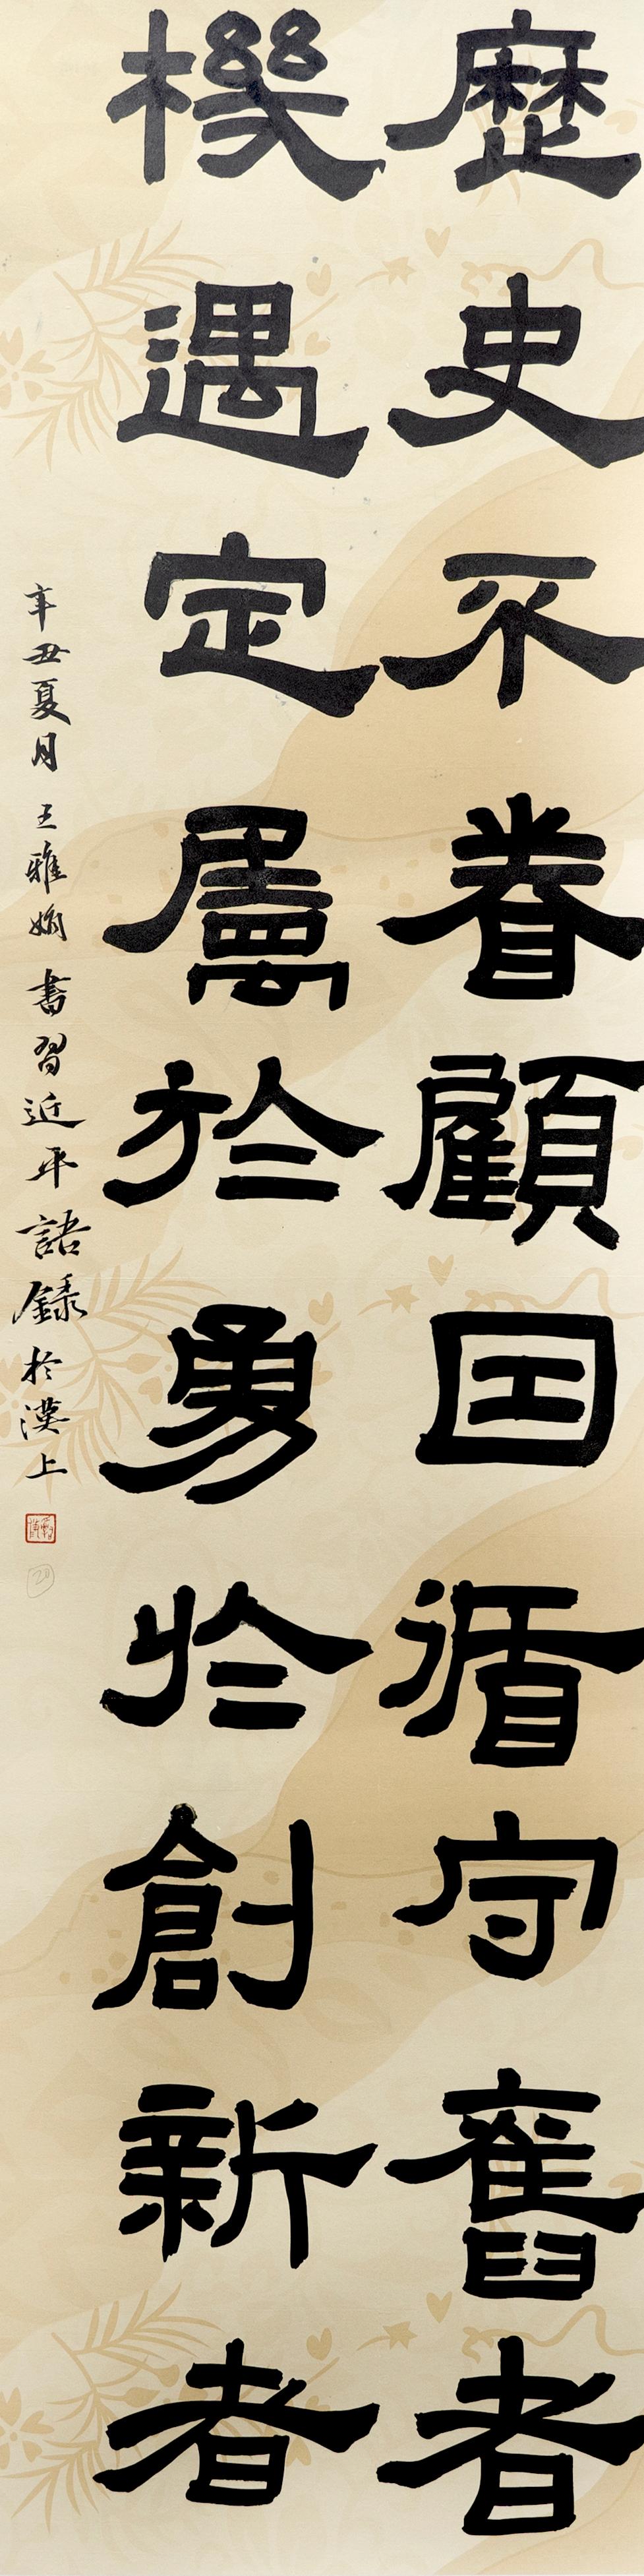 歷史不眷顧因循守舊者
機遇定屬於勇於創新者
辛丑夏月王雅娟書習近平語錄於漢上
20